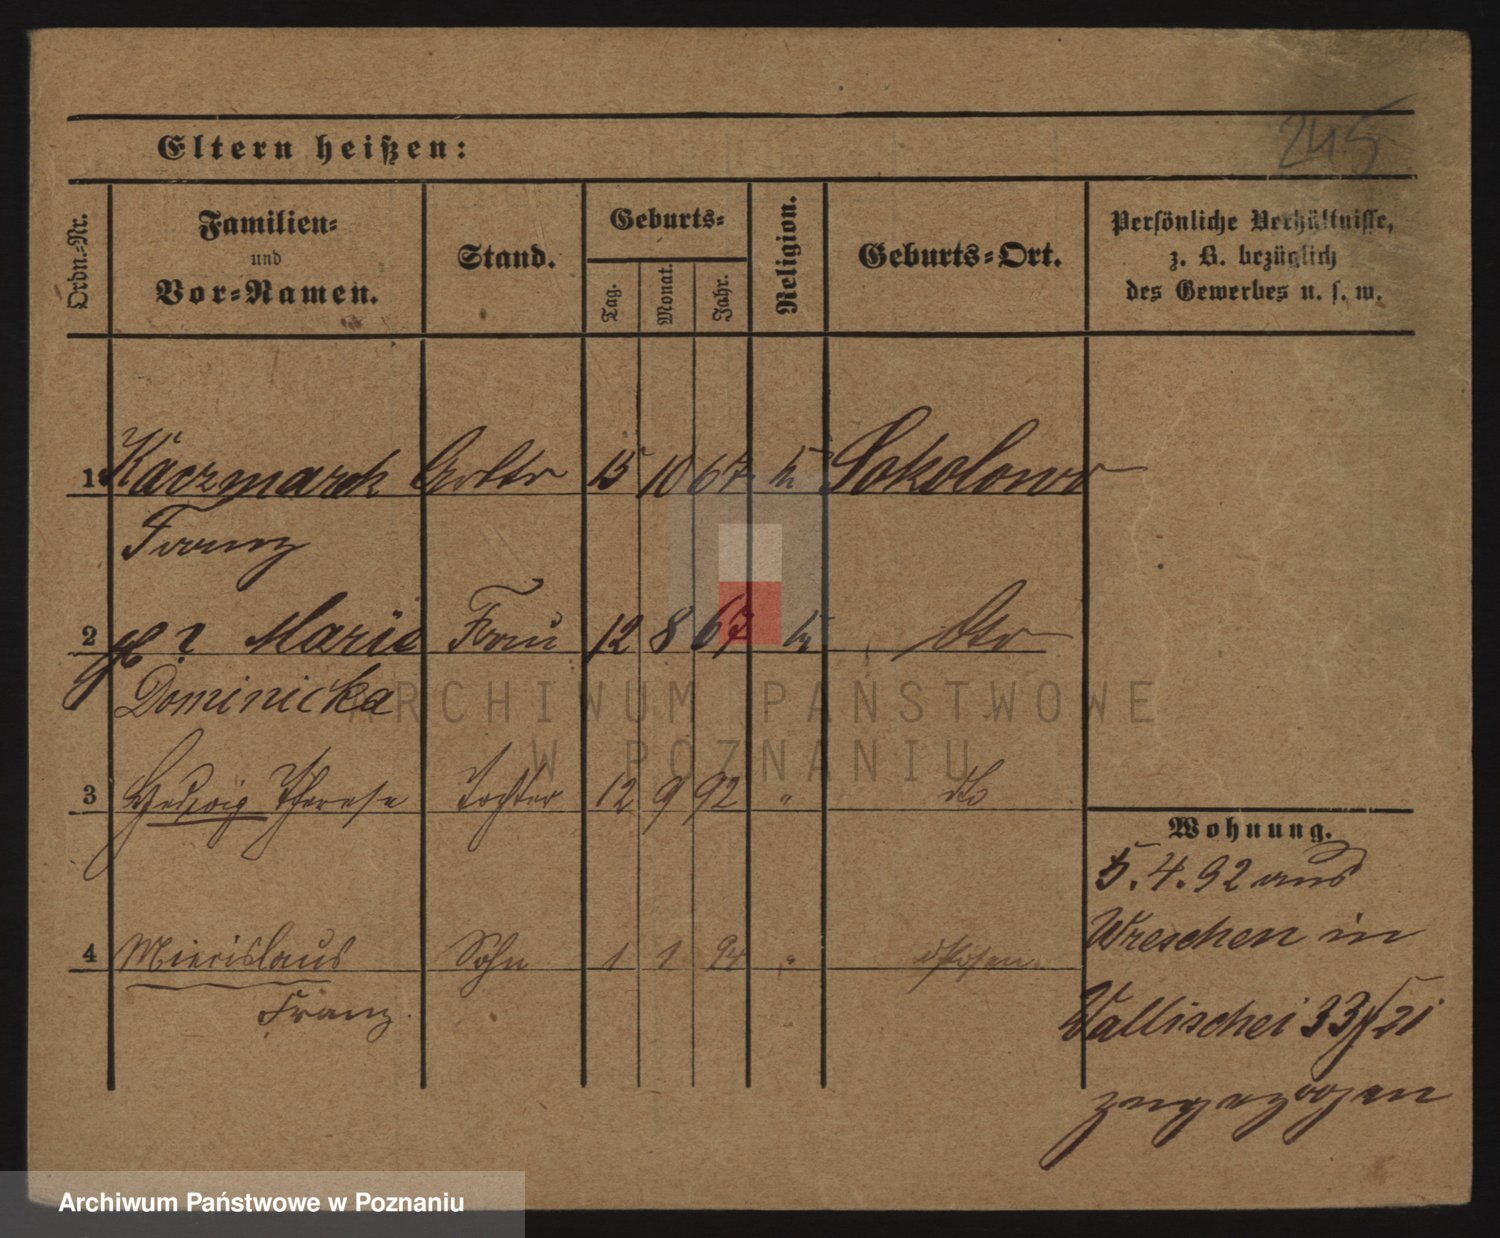 245
Eltern heißen:
Ordn.-Nr.
Familien-
und
Vor-Namen.
Stand.
Geburts-
Tag.
Monat.
Jahr.
Religion.
Geburts-Ort.
Persönliche Verhältnisse,
z. B. bezüglich
des Gewerbes u. s. w.
1 Kaczmarek 15 10 67 k Sokolowo
Franz
2 g. ? Marie Frau 12 8 67 k
Dominicka
3 Hedwig Therese Tochter 12 9 92 " do
4 Miecislaus Sohn 1 1 94 "
Franz.
Wohnung.
5.4.92 aus
Wreschen in
Wallischei 33/21
zugezogen
ARCHIWUM PAŃSTWOWE
W POZNANIU
Archiwum Państwowe w Poznaniu